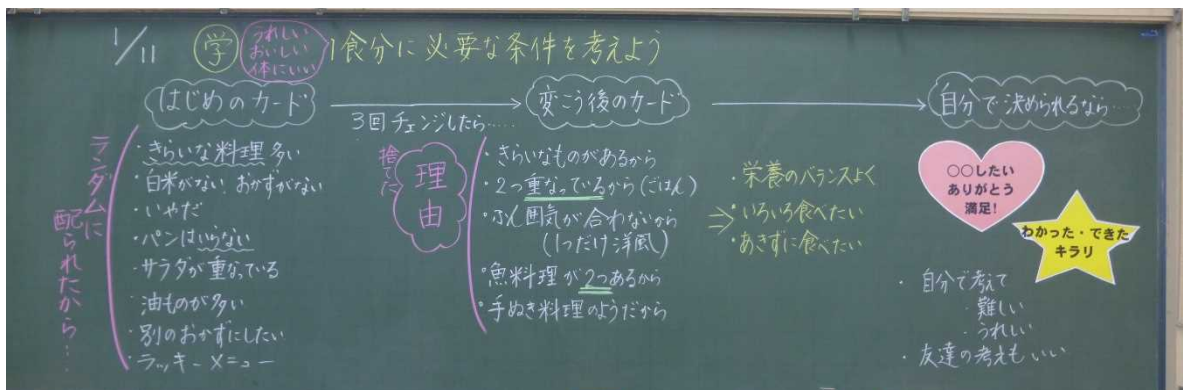 1/11
学
うれしい
おいしい
体にいい
1食分に必要な条件を考えよう
はじめのカード
ランダムに
配られたから…
・きらいな料理多い
・白米がない おかずがない
・いやだ
・パンはいらない
・サラダが重なっている
・油ものが多い
・別のおかずにしたい
・ラッキーメニュー
3回チェンジしたら……
変こう後のカード
捨てた
理由
・きらいなものがあるから
・2つ重なっているから(ごはん)
・ふん囲気が合わないから
(1つだけ洋風)
・魚料理が2つあるから
・手ぬき料理のようだから
・栄養のバランスよく
⇒・いろいろ食べたい
・あきずに食べたい
自分で決められるなら…
○○したい
ありがとう
満足!
わかった・できた
キラリ
・自分で考えて
・難しい
・うれしい
・友達の考えもいい